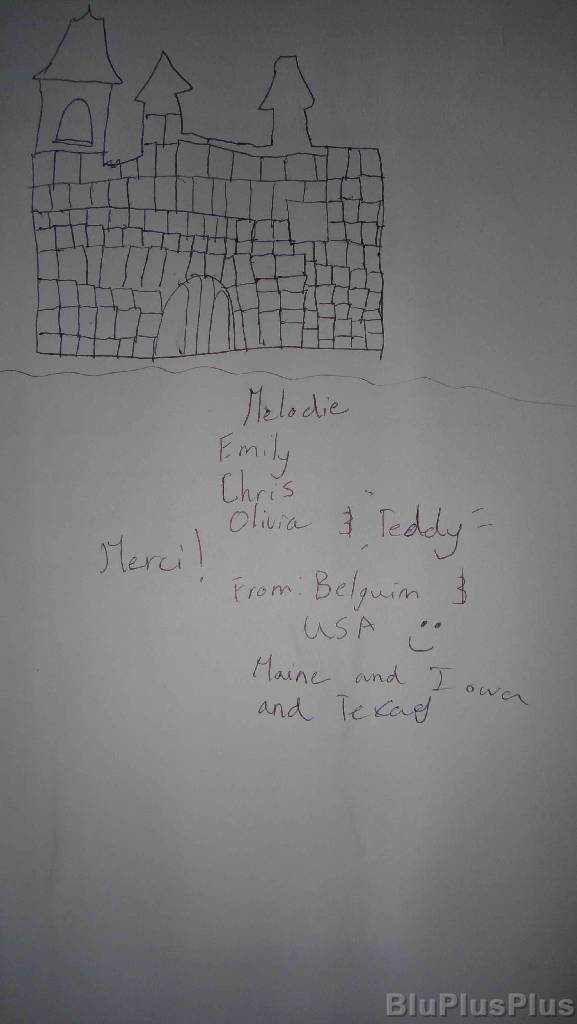 Melodie
Emily
Chris
Olivia & "Teddy"
Merci!
From: Belguim &
USA
Maine and Iowa
and Texas
BluPlusPlus